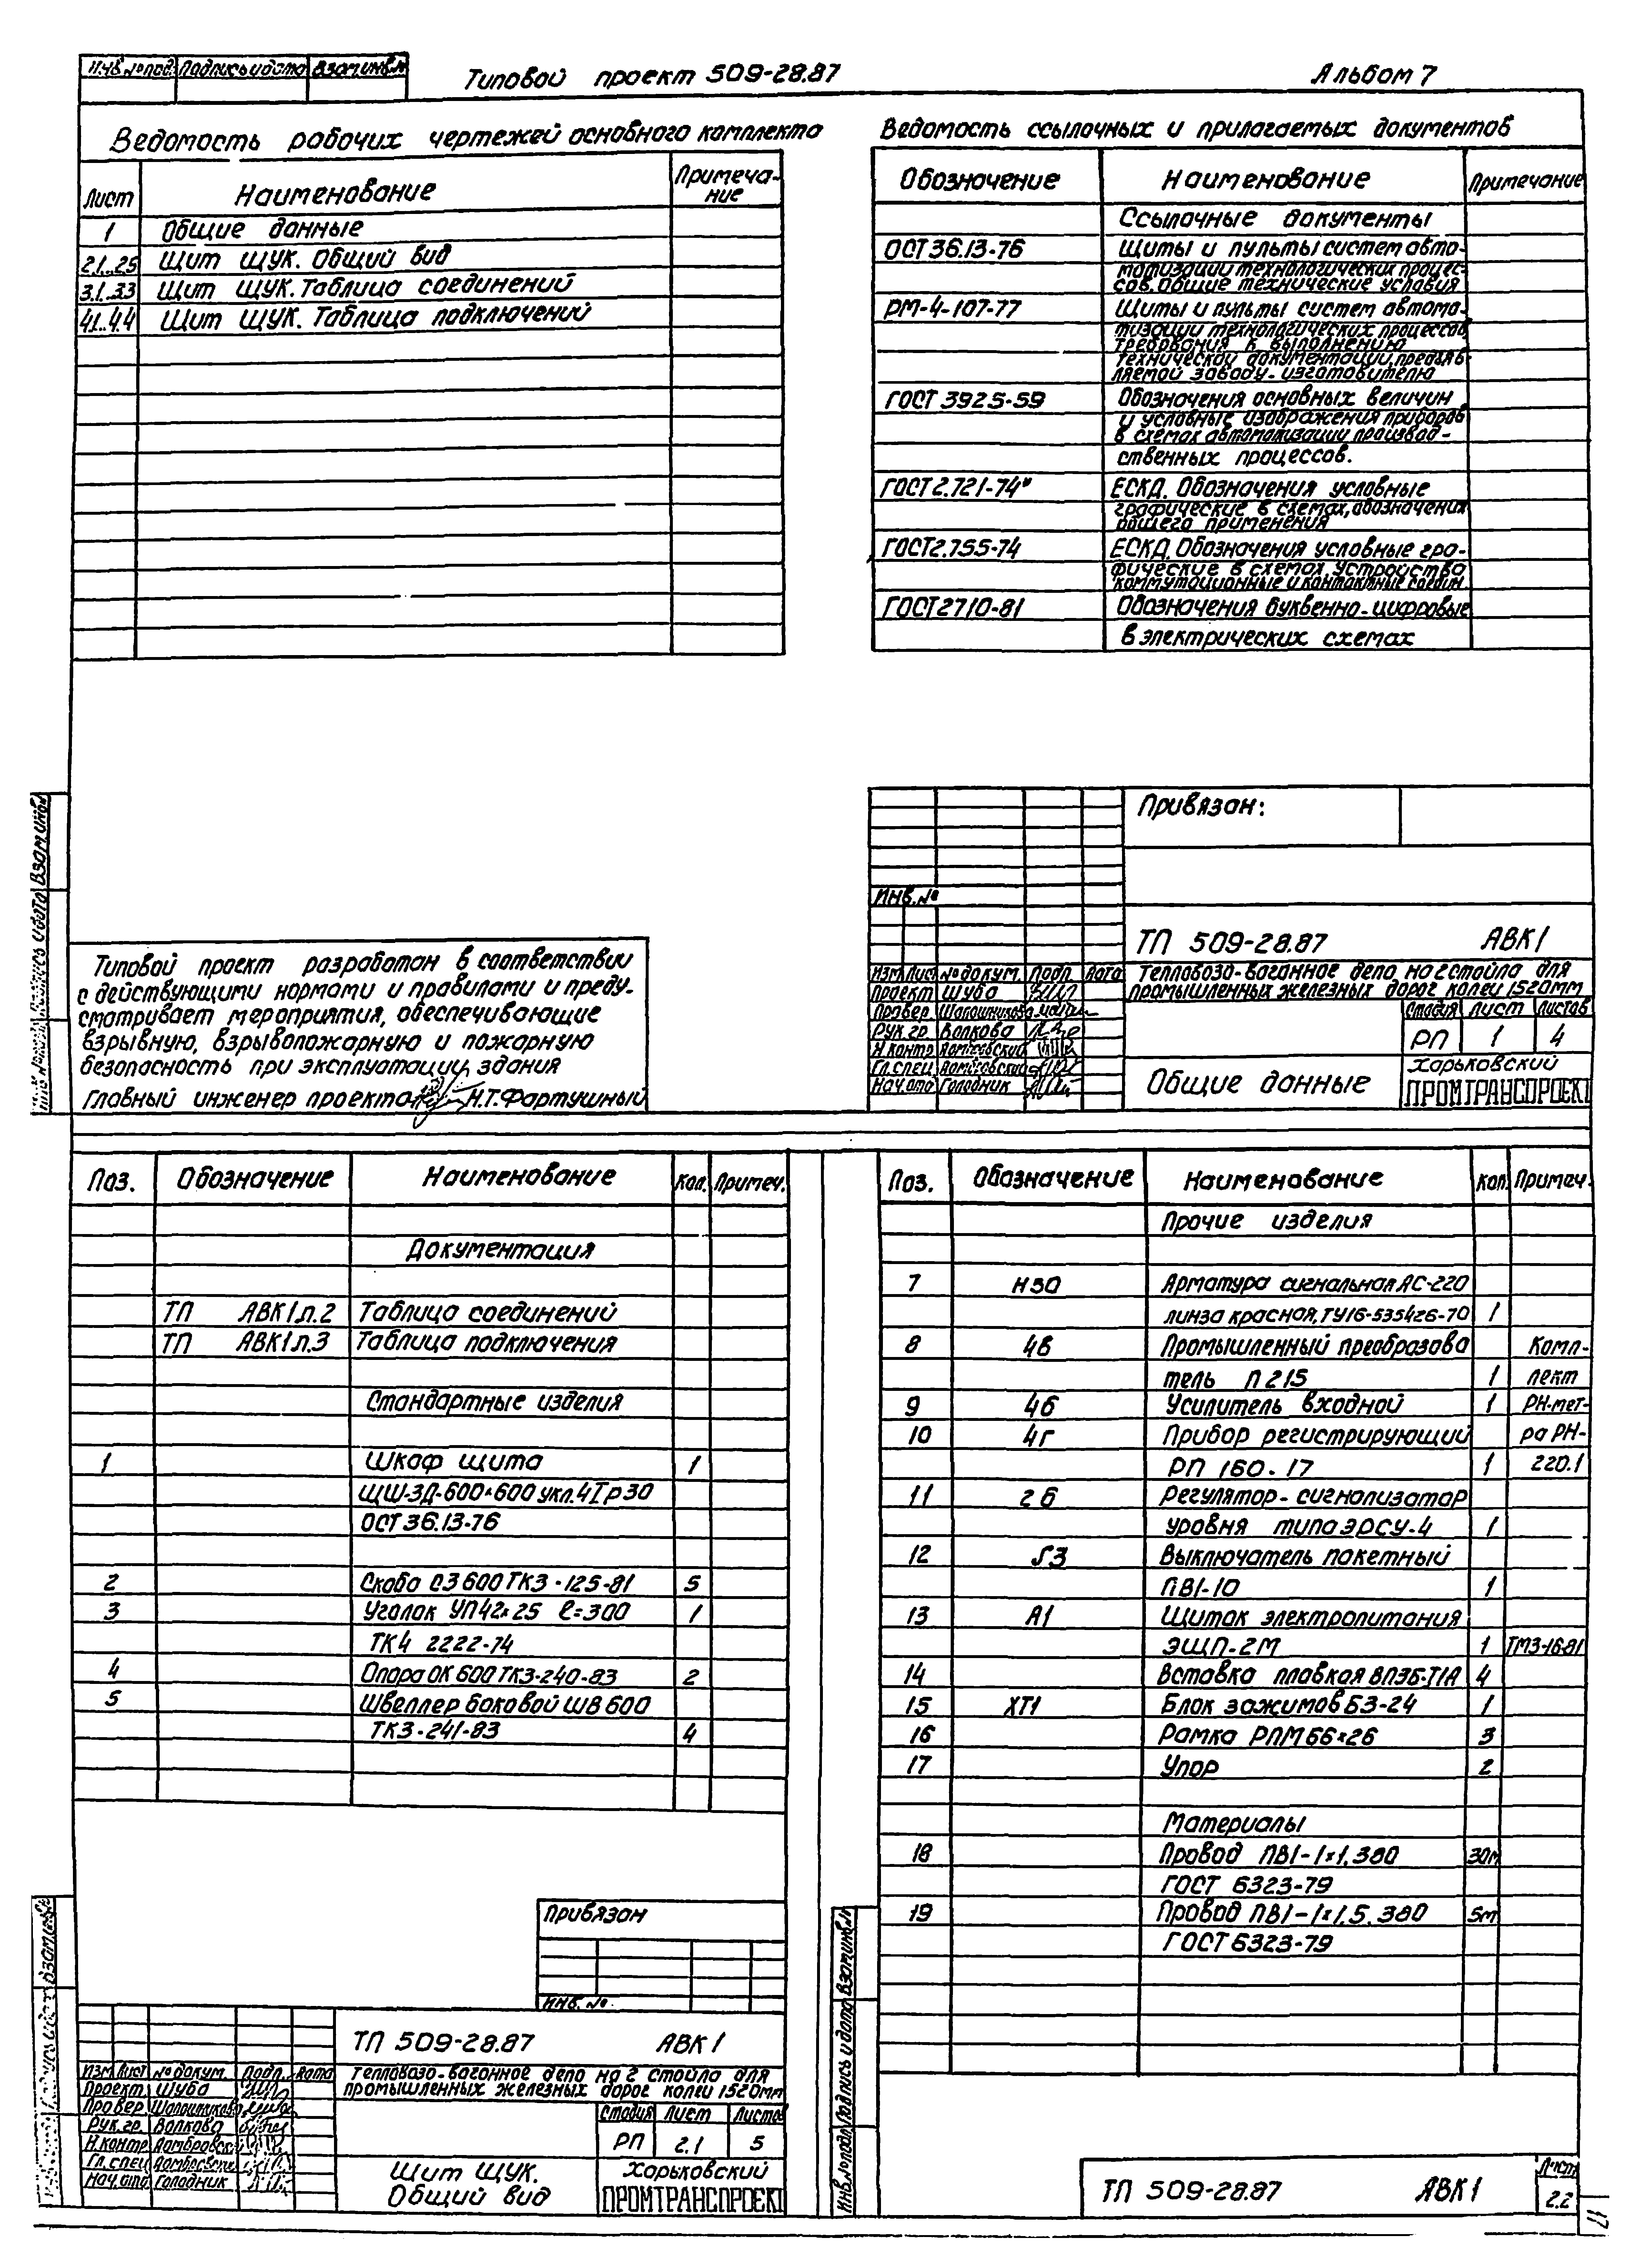 Инв.№под. Подпись и дата Взам.инв.№
Типовой проект 509-28.87
Альбом 7
Ведомость рабочих чертежей основного комплекта
Лист Наименование Примеча-
ние
1 Общие данные
2.1..2.5 Щит ЩУК. Общий вид
3.1..3.3 Щит ЩУК. Таблица соединений
4.1..4.4 Щит ЩУК. Таблица подключений
Ведомость ссылочных и прилагаемых документов
Обозначение Наименование Примечание
Ссылочные документы
ОСТ 36.13-76 Щиты и пульты систем авто-
матизации технологических процес-
сов. Общие технические условия
РМ-4-107-77 Щиты и пульты систем автома-
тизации технологических процессов,
требования к выполнению
технической документации, предъяв-
ляемой заводу-изготовителю
ГОСТ 3925-59 Обозначения основных величин
и условные изображения приборов
в схемах автоматизации производ-
ственных процессов.
ГОСТ 2.721-74* ЕСКД. Обозначения условные
графические в схемах, обозначения
общего применения
ГОСТ 2.755-74 ЕСКД. Обозначения условные гра-
фические в схемах. Устройства
коммутационные и контактные соедин.
ГОСТ 2710-81 Обозначения буквенно-цифровые
в электрических схемах
Типовой проект разработан в соответствии
с действующими нормами и правилами и преду-
сматривает мероприятия, обеспечивающие
взрывную, взрывопожарную и пожарную
безопасность при эксплуатации здания
Главный инженер проекта Н.Т. Фартушный
Взам.инв.№
Привязан:
Инв.№
ТП 509-28.87 АВК1
Изм Лист № докум. Подп. Дата
Тепловозо-вагонное депо на 2 стойла для
промышленных железных дорог колеи 1520мм
Проект Шуба
Провер. Шапошникова
Рук.гр. Волкова
Н.контр Домбровский
Гл.спец Домбровский
Нач.отд Голодник
Стадия Лист Листов
РП 1 4
Общие данные
Харьковский
ПРОМТРАНСПРОЕКТ
Поз. Обозначение Наименование Кол. Примеч.
Документация
ТП АВК1.п.2 Таблица соединений
ТП АВК1.п.3 Таблица подключения
Стандартные изделия
1 Шкаф щита 1
ЩШ-ЗД-600×600 укл.4 Iр30
ОСТ 36.13-76
2 Скоба С3 600 ТК3-125-81 5
3 Уголок УП42×25 ℓ=300 1
ТК4 2222-74
4 Опора ОК 600 ТК3-240-83 2
5 Швеллер боковой ШБ 600
ТК3-241-83 4
Привязан
Инв.№
ТП 509-28.87 АВК1
Изм Лист № докум. Подп. Дата
Тепловозо-вагонное депо на 2 стойла для
промышленных железных дорог колеи 1520мм
Проект Шуба
Провер Шапошникова
Рук.гр. Волкова
Н.контр Домбровский
Гл.спец Домбровский
Нач.отд Голодник
Стадия Лист Листов
РП 2.1 5
Щит ЩУК.
Общий вид
Харьковский
ПРОМТРАНСПРОЕКТ
Поз. Обозначение Наименование Кол. Примеч.
Прочие изделия
7 Н30 Арматура сигнальная АС-220
линза красная, ТУ16-535426-70 1
8 4в Промышленный преобразова Комп-
тель П215 1 лект
9 4б Усилитель входной 1 РН-мет-
10 4г Прибор регистрирующий ра РН-
РП 160-17 1 220.1
11 2б Регулятор-сигнализатор
уровня типа ЭРСУ-4 1
12 S3 Выключатель пакетный
ПВ1-10 1
13 А1 Щиток электропитания
ЭЩП-2М 1 ТМ3-16-81
14 Вставка плавкая ВП3Б-Т1А 4
15 ХТ1 Блок зажимов Б3-24 1
16 Рамка РПМ 66×26 3
17 Упор 2
Материалы
18 Провод ПВ1-1×1, 380 30м
ГОСТ 6323-79
19 Провод ПВ1-1×1,5, 380 5м
ГОСТ 6323-79
Инв.№ подл. Подпись и дата Взам.инв.№
ТП 509-28.87 АВК1
Лист
2.2
17